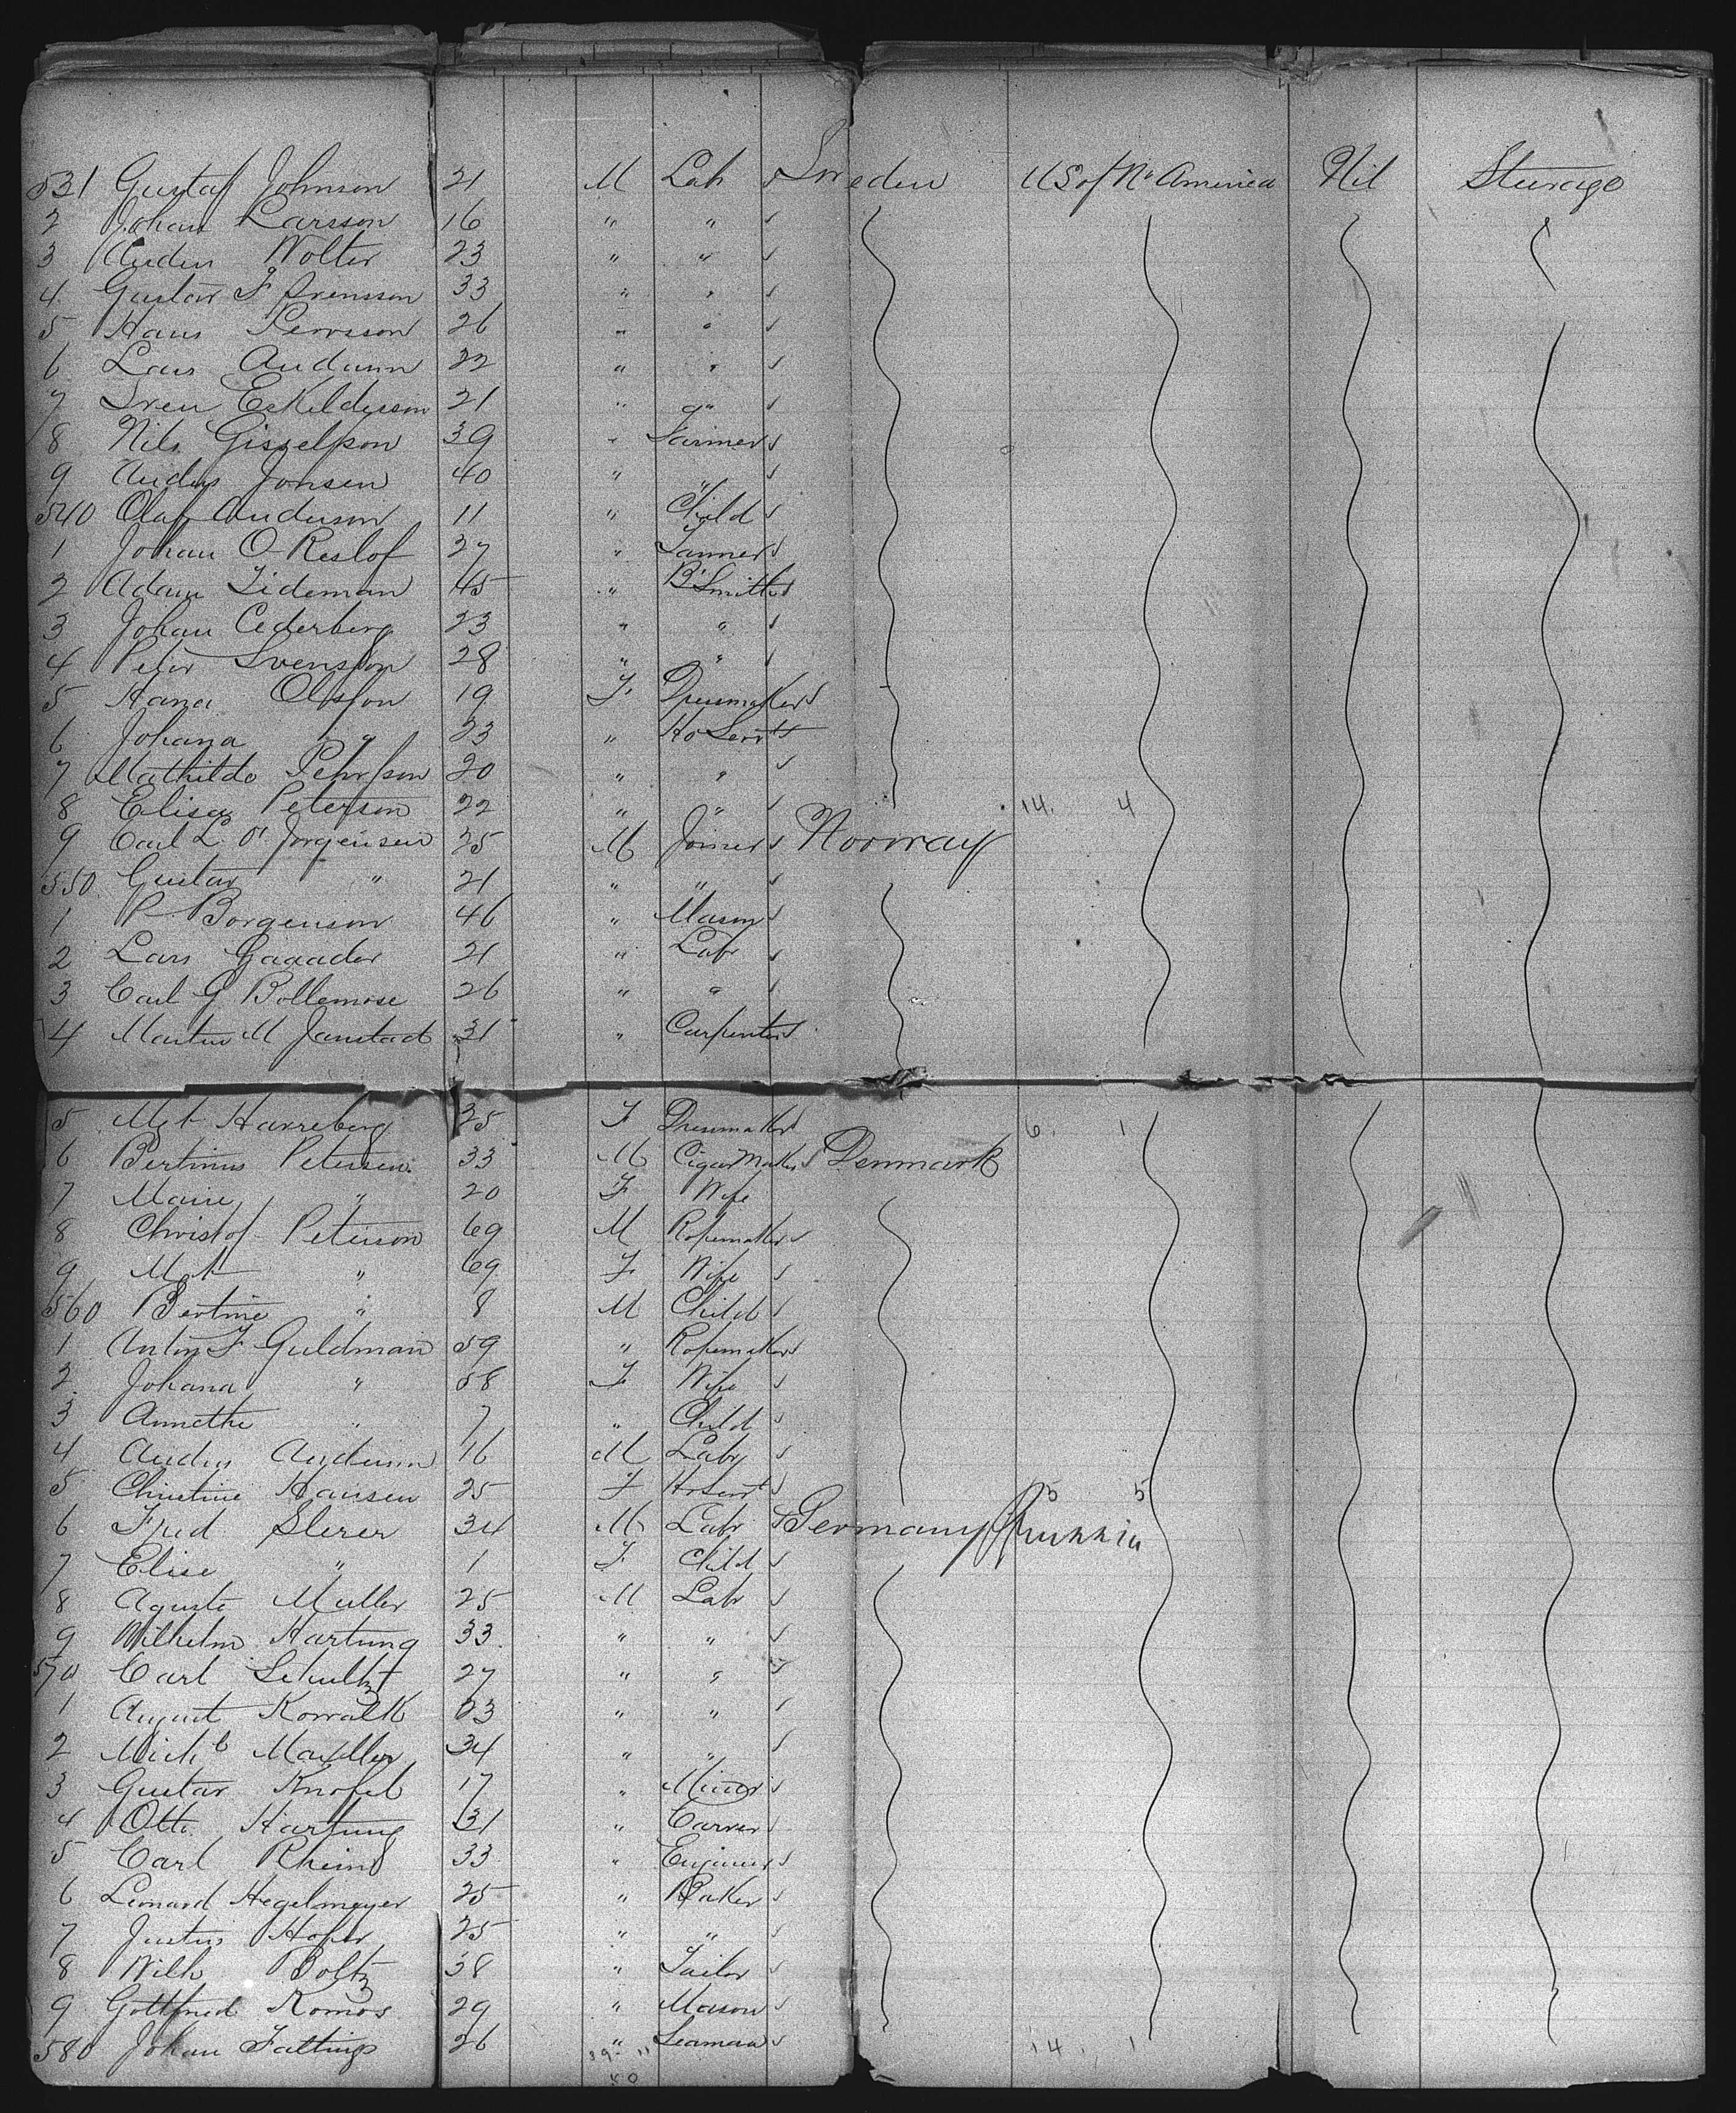 531 Gustaf Johnson 21 M Lab Sweden US of No America Nil Steerage
2 Johan Larsson 16 " "
3 Anders Wolter 23 " "
4 Gustav F Svensson 33 " "
5 Hans Persson 26 " "
6 Lars Anderson 22 " "
7 Sven Eskildsson 21 " "
8 Nils Gisselsson 39 " Farmer
9 Anders Jonsen 40 " "
540 Olaf Anderson 11 " Child
1 Johan O Reslof 27 " Tanner
2 Adam Tideman 45 " B'Smith
3 Johan Cederberg 23 " "
4 Peter Svensson 28 " "
5 Hana Olsson 19 F Dressmaker
6 Johana " 23 " Ho Servt
7 Mathilde Pehrsson 20 " "
8 Elisa Peterson 22 " " 14 4
9 Carl L. O. Jorgensen 25 M Joiner Norway
550 Gustav " 21 " "
1 P Borgenson 46 " Mason
2 Lars 21 " Labr
3 Carl G Bollemose 26 " "
4 Martin M Janstad 31 " Carpenter
5 Met Harreberg 25 F Dressmaker 6 1
6 Bertinus Petersen 33 M Cigar Maker Denmark
7 Marie " 20 F Wife
8 Christof Peterson 69 M Ropemaker
9 Met " 69 F Wife
560 Bertine " 8 M Child
1 Anton F Guldman 59 " Ropemaker
2 Johana " 58 F Wife
3 Annethe " 7 " Child
4 Anders Anderson 16 M Labr
5 Christine Hansen 25 F Ho Servt 5 5
6 Fred Slerer 34 M Labr Germany Prussia
7 Elise " 1 F Child
8 Aguste Muller 25 M Labr
9 Wilhelm Hartung 33 " "
570 Carl Schultz 27 " "
1 August Kowalk 23 " "
2 Michl 34 " "
3 Gustav Knofel 17 " Miner
4 Otto Hartung 31 " Carver
5 Carl Rheind 33 " Engineer
6 Leonard Hegelmeyer 25 " Baker
7 Justus Hofer 25 " "
8 Wilh Boltz 38 " Tailor
9 Gottfried Komos 29 " Mason
580 Johan Fattings 26 " Seaman 14 1
39 11